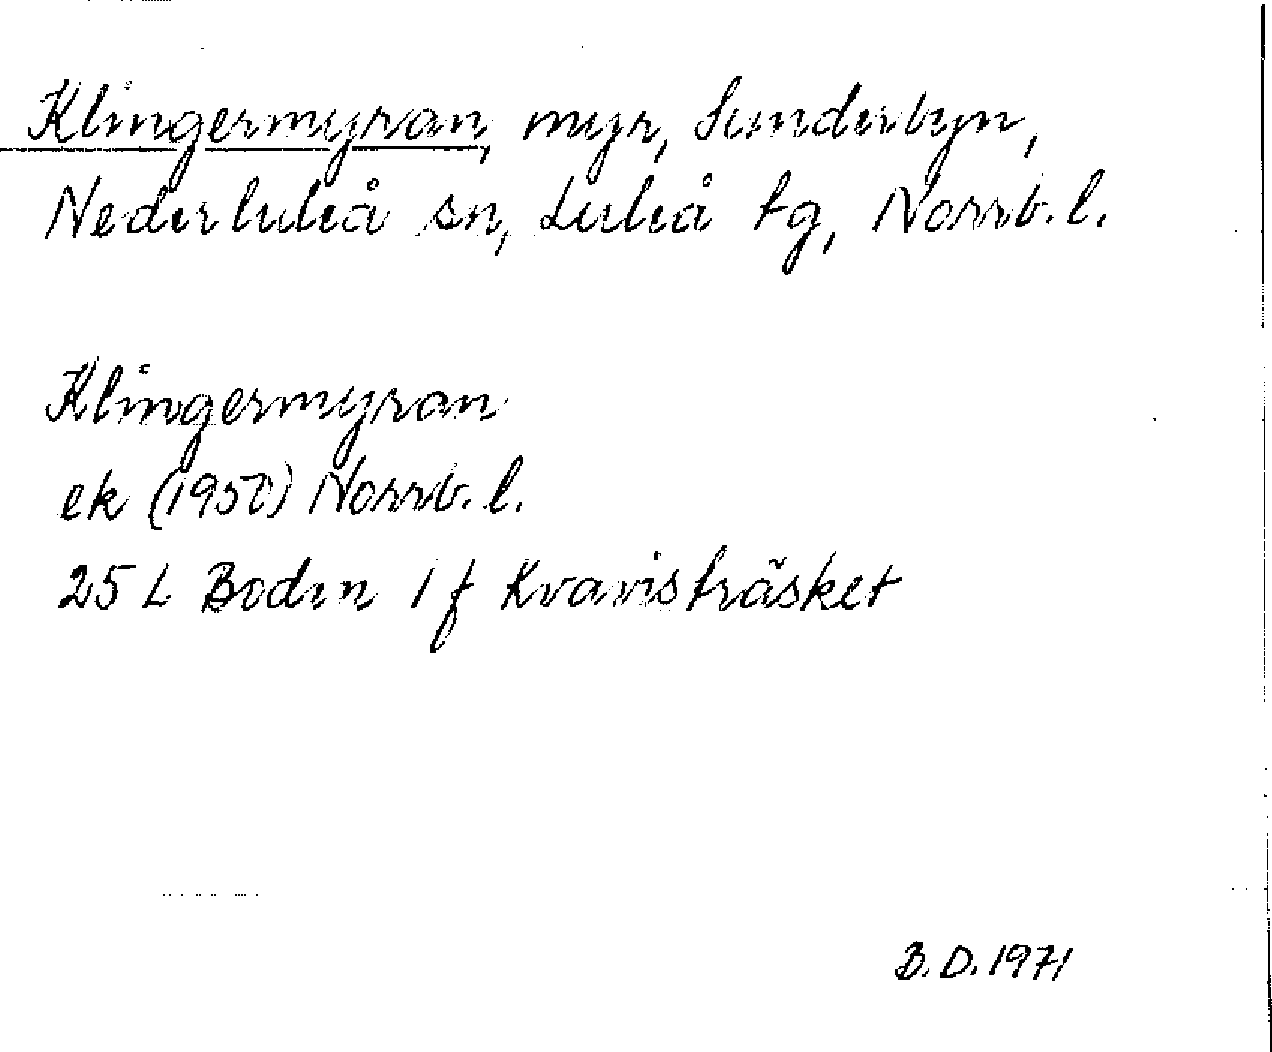 Klingermyran, myr, Sunderbyn,
Nederluleå sn, Luleå tg, Norrb. l.
Klingermyran
ek (1950) Norrb. l.
25 L Boden 1 f Kvavisträsket
B. D. 1971